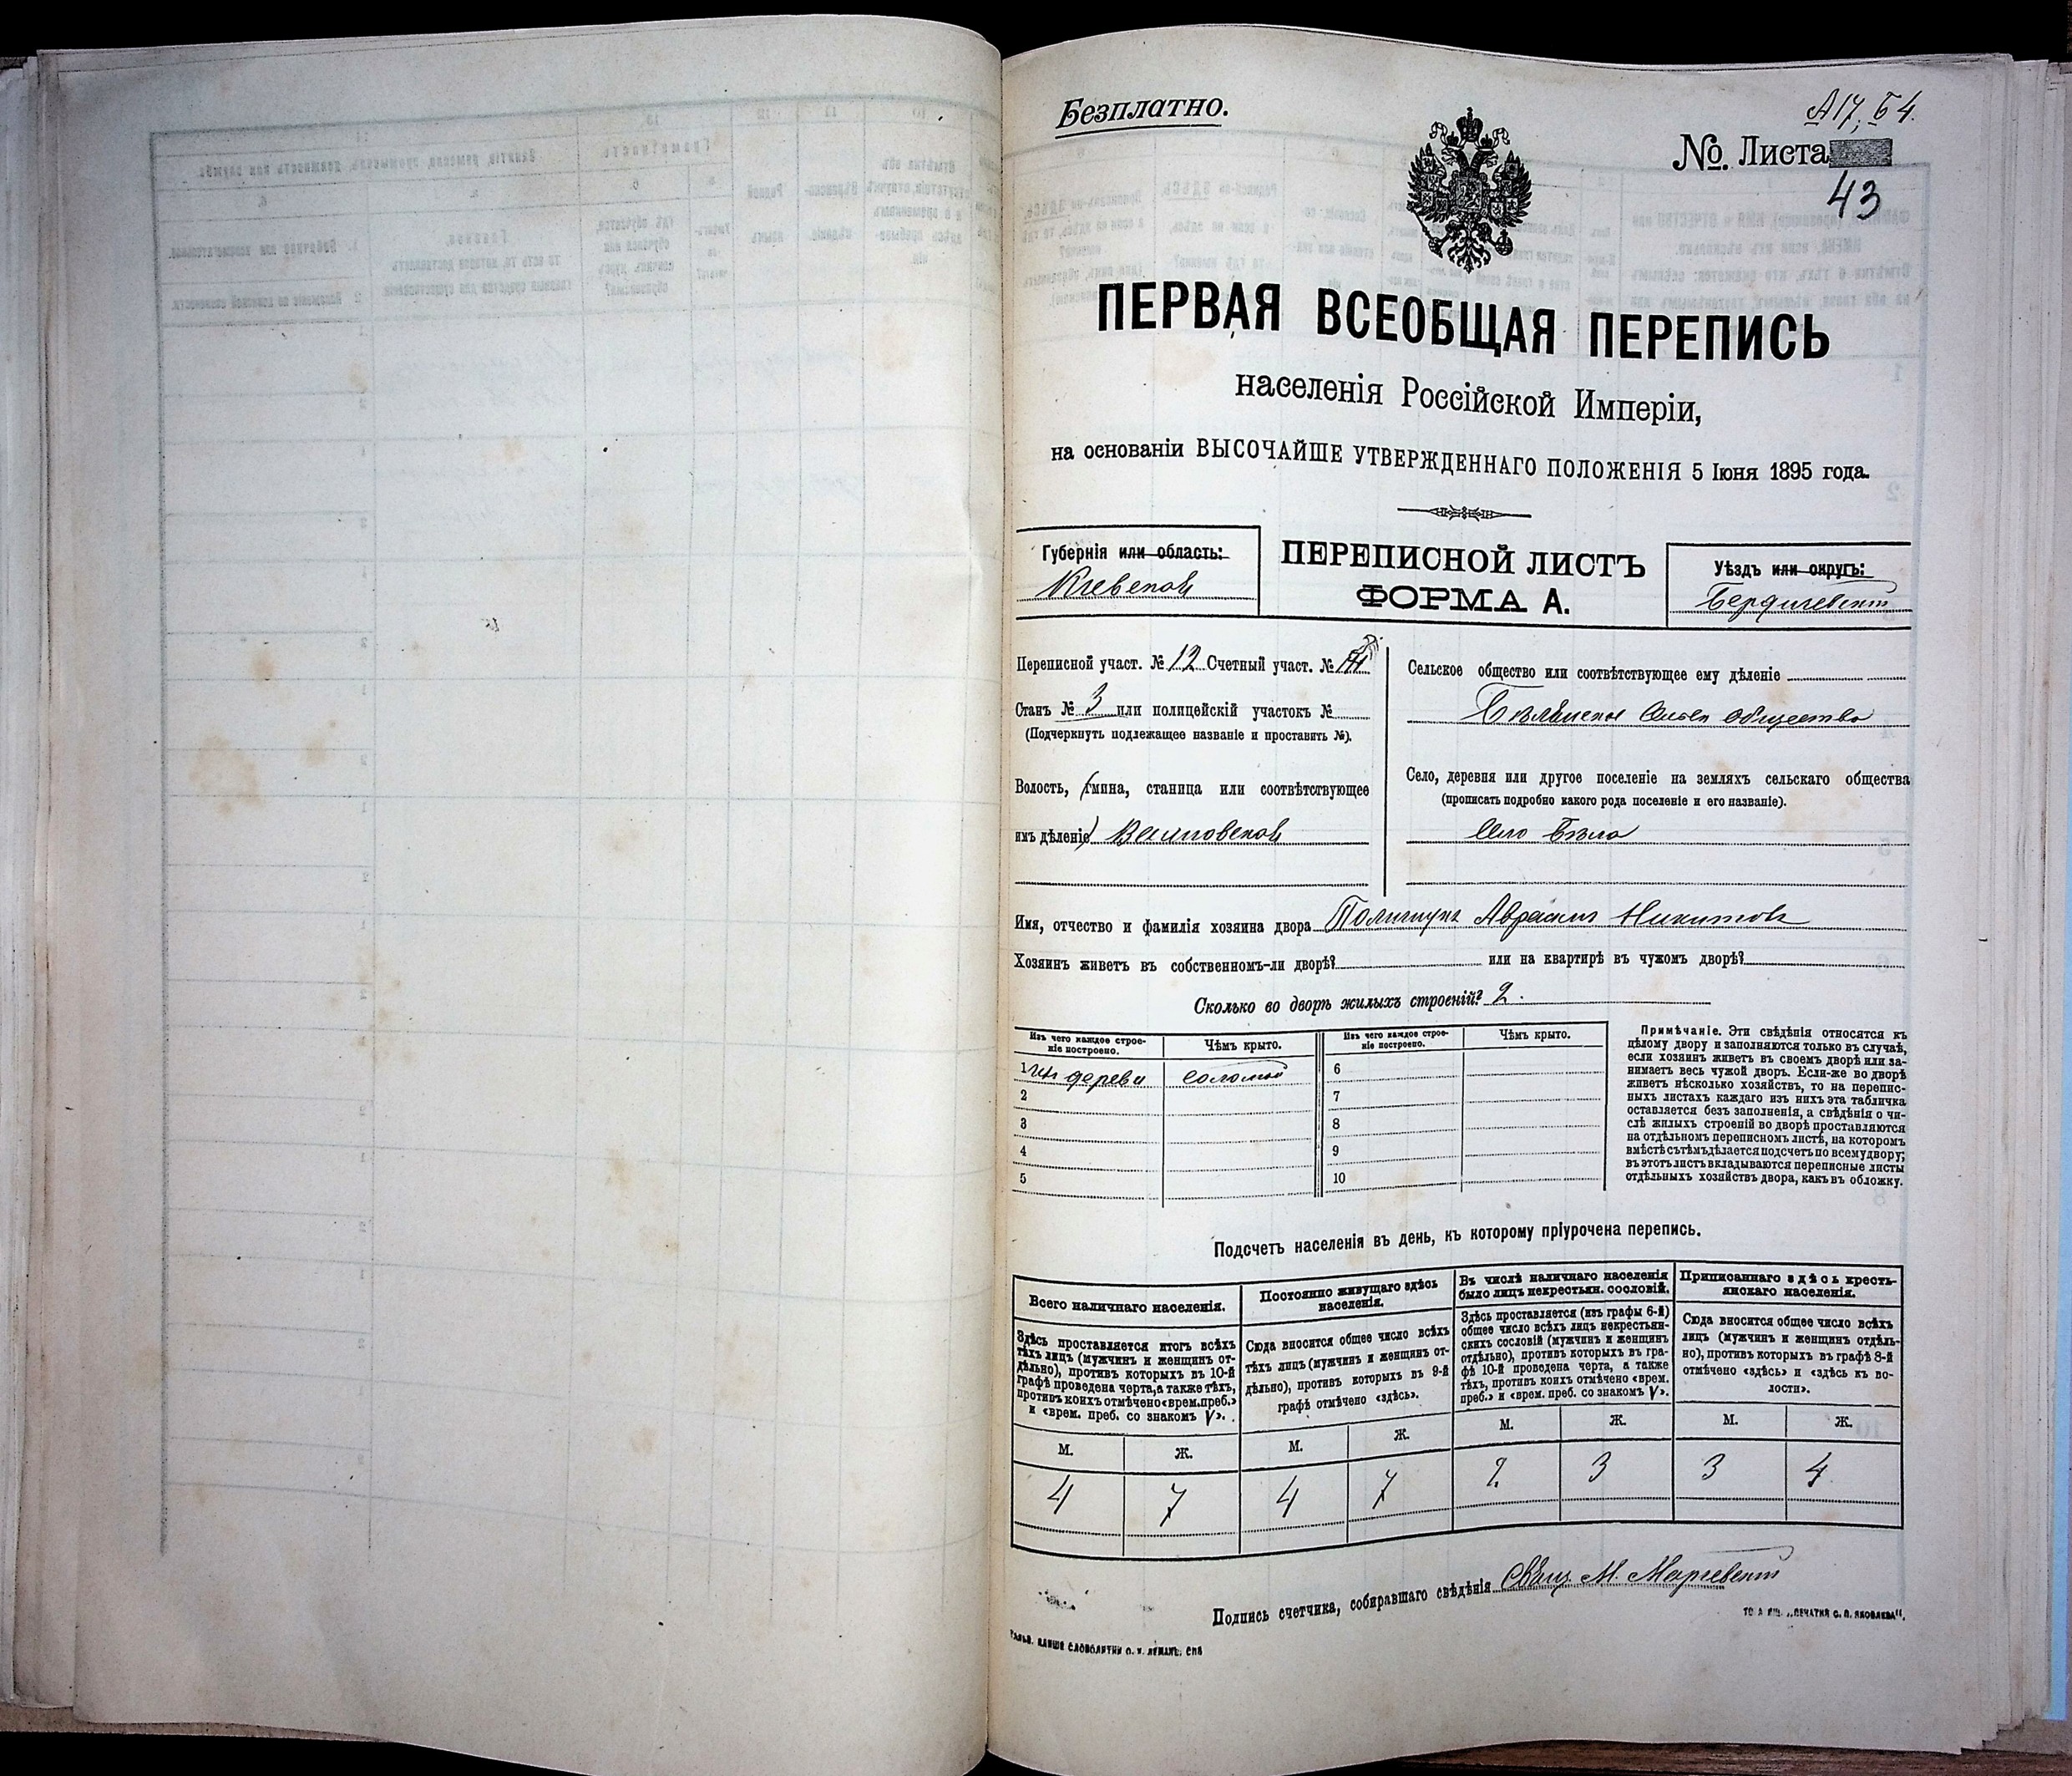 Безплатно.
А17; Б4.
№ Листа
43
ПЕРВАЯ ВСЕОБЩАЯ ПЕРЕПИСЬ
населенія Россійской Имперіи,
на основаніи ВЫСОЧАЙШЕ УТВЕРЖДЕННАГО ПОЛОЖЕНІЯ 5 Іюня 1895 года.
Губернія или область:
Кіевской
ПЕРЕПИСНОЙ ЛИСТЪ
ФОРМА А.
Уѣздъ или округъ:
Бердичевскій
Переписной участ. № 12 Счетный участ. №
Станъ № 3 или полицейскій участокъ №
(Подчеркнуть подлежащее названіе и проставить №).
Волость, (гмина, станица или соотвѣтствующее
имъ дѣленіе)
Сельское общество или соотвѣтствующее ему дѣленіе
общество
Село, деревня или другое поселеніе на земляхъ сельскаго общества
(прописать подробно какого рода поселеніе и его названіе).
Село Бѣла
Имя, отчество и фамилія хозяина двора Полищукъ Авраамъ Никитовъ
Хозяинъ живетъ въ собственномъ-ли дворѣ? или на квартирѣ въ чужомъ дворѣ?
Сколько во дворѣ жилыхъ строеній? 2.
Изъ чего каждое строе-
ніе построено.
Чѣмъ крыто.
Изъ чего каждое строе-
ніе построено.
Чѣмъ крыто.
1 изъ дерева соломой 6
2 7
3 8
4 9
5 10
Примѣчаніе. Эти свѣдѣнія относятся къ
цѣлому двору и заполняются только въ случаѣ,
если хозяинъ живетъ въ своемъ дворѣ или за-
нимаетъ весь чужой дворъ. Если-же во дворѣ
живетъ нѣсколько хозяйствъ, то на перепис-
ныхъ листахъ каждаго изъ нихъ эта табличка
оставляется безъ заполненія, а свѣдѣнія о чи-
слѣ жилыхъ строеній во дворѣ проставляются
на отдѣльномъ переписномъ листѣ, на которомъ
вмѣстѣ съ тѣмъ дѣлается подсчетъ по всему двору;
въ этотъ листъ вкладываются переписные листы
отдѣльныхъ хозяйствъ двора, какъ въ обложку.
Подсчетъ населенія въ день, къ которому пріурочена перепись.
Всего наличнаго населенія.
Здѣсь проставляется итогъ всѣхъ
тѣхъ лицъ (мужчинъ и женщинъ от-
дѣльно), противъ которыхъ въ 10-й
графѣ проведена черта, а также тѣхъ,
противъ коихъ отмѣчено «врем. преб.»
и «врем. преб. со знакомъ V».
М. Ж.
4 7
Постоянно живущаго здѣсь
населенія.
Сюда вносится общее число всѣхъ
тѣхъ лицъ (мужчинъ и женщинъ от-
дѣльно), противъ которыхъ въ 9-й
графѣ отмѣчено «здѣсь».
М. Ж.
4 7
Въ числѣ наличнаго населенія
было лицъ некрестьян. сословій.
Здѣсь проставляется (изъ графы 6-й)
общее число всѣхъ лицъ некрестьян-
скихъ сословій (мужчинъ и женщинъ
отдѣльно), противъ которыхъ въ гра-
фѣ 10-й проведена черта, а также
тѣхъ, противъ коихъ отмѣчено «врем.
преб.» и «врем. преб. со знакомъ V».
М. Ж.
2 3
Приписаннаго здѣсь кресть-
янскаго населенія.
Сюда вносится общее число всѣхъ
лицъ (мужчинъ и женщинъ отдѣль-
но), противъ которыхъ въ графѣ 8-й
отмѣчено «здѣсь» и «здѣсь къ во-
лости».
М. Ж.
3 4
Подпись счетчика, собиравшаго свѣдѣнія Свящ. М.